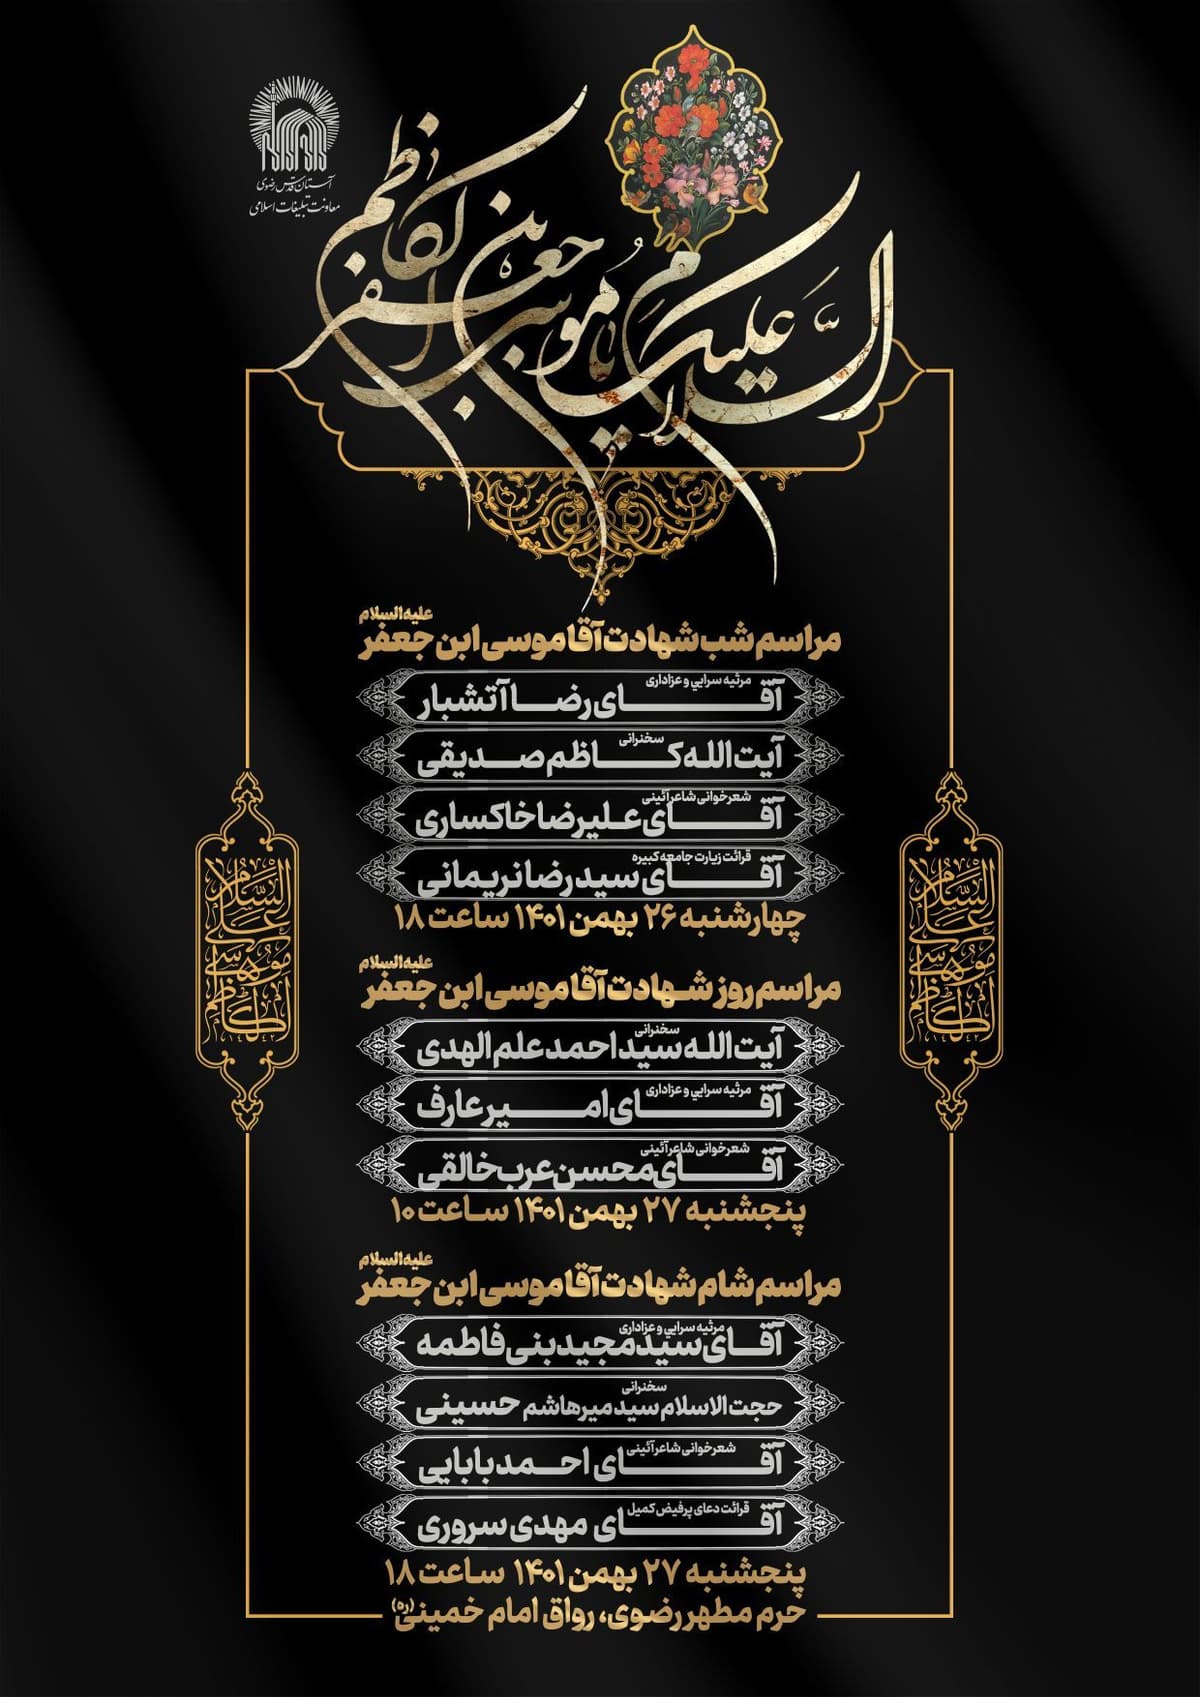 آستان قدس رضوی
معاونت تبلیغات اسلامی
السَّلامُ عَلیکَ یا موسی بن جعفر الکاظم
مراسم شب شهادت آقا موسی ابن جعفر علیه السلام
مرثیه سرایی و عزاداری
آقـای رضـا آتشبار
سخنرانی
آیت الله کـاظم صـدیقی
شعرخوانی شاعر آئینی
آقـای علیرضا خاکساری
قرائت زیارت جامعه کبیره
آقـای سید رضا نریمانی
چهارشنبه ۲۶ بهمن ۱۴۰۱ ساعت ۱۸
مراسم روز شهادت آقا موسی ابن جعفر علیه السلام
سخنرانی
آیت الله سید احمد علم الهدی
مرثیه سرایی و عزاداری
آقـای امـیر عارف
شعرخوانی شاعر آئینی
آقـای محسن عرب خالقی
پنجشنبه ۲۷ بهمن ۱۴۰۱ ساعت ۱۰
مراسم شام شهادت آقا موسی ابن جعفر علیه السلام
مرثیه سرایی و عزاداری
آقـای سید مجید بنی فاطمه
سخنرانی
حجت الاسلام سید میرهاشم حسینی
شعرخوانی شاعر آئینی
آقـای احـمد بابایی
قرائت دعای پرفیض کمیل
آقـای مهدی سروری
پنجشنبه ۲۷ بهمن ۱۴۰۱ ساعت ۱۸
حرم مطهر رضوی، رواق امام خمینی (ره)
السَّلام
علی
موسی
الکاظم
۱۴۴۲
السَّلام
علی
موسی
الکاظم
۱۴۴۲